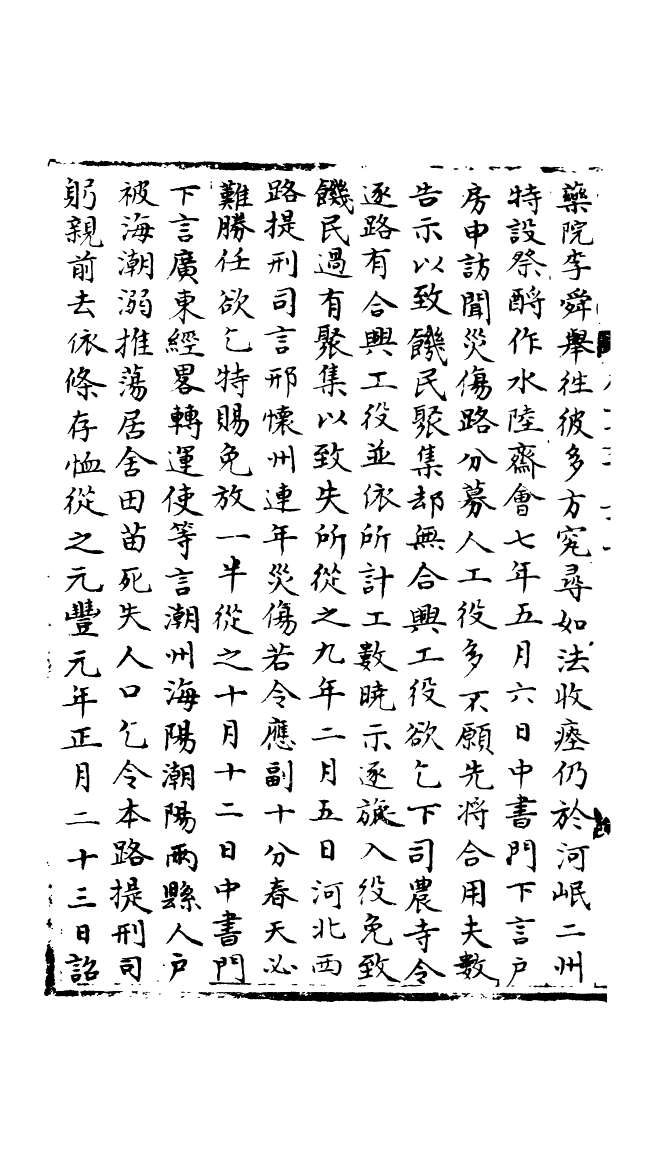 藥院李舜舉往彼多方究尋如法收瘞仍於河岷二州
特設祭酹作水陸齋會七年五月六日中書門下言户
房申訪聞災傷路分募人工役多不願先將合用夫數
告示以致饑民聚集却無合興工役欲乞下司農寺令
逐路有合興工役並依所計工數曉示逐旋入役免致
饑民過有聚集以致失所從之九年二月五日河北西
路提刑司言邢懷州連年災傷若令應副十分春天必
難勝任欲乞特賜免放一半從之十月十二日中書門
下言廣東經畧轉運使等言潮州海陽潮陽兩縣人户
被海潮溺推蕩居舍田苗死失人口乞令本路提刑司
躬親前去依條存恤從之元豐元年正月二十三日詔